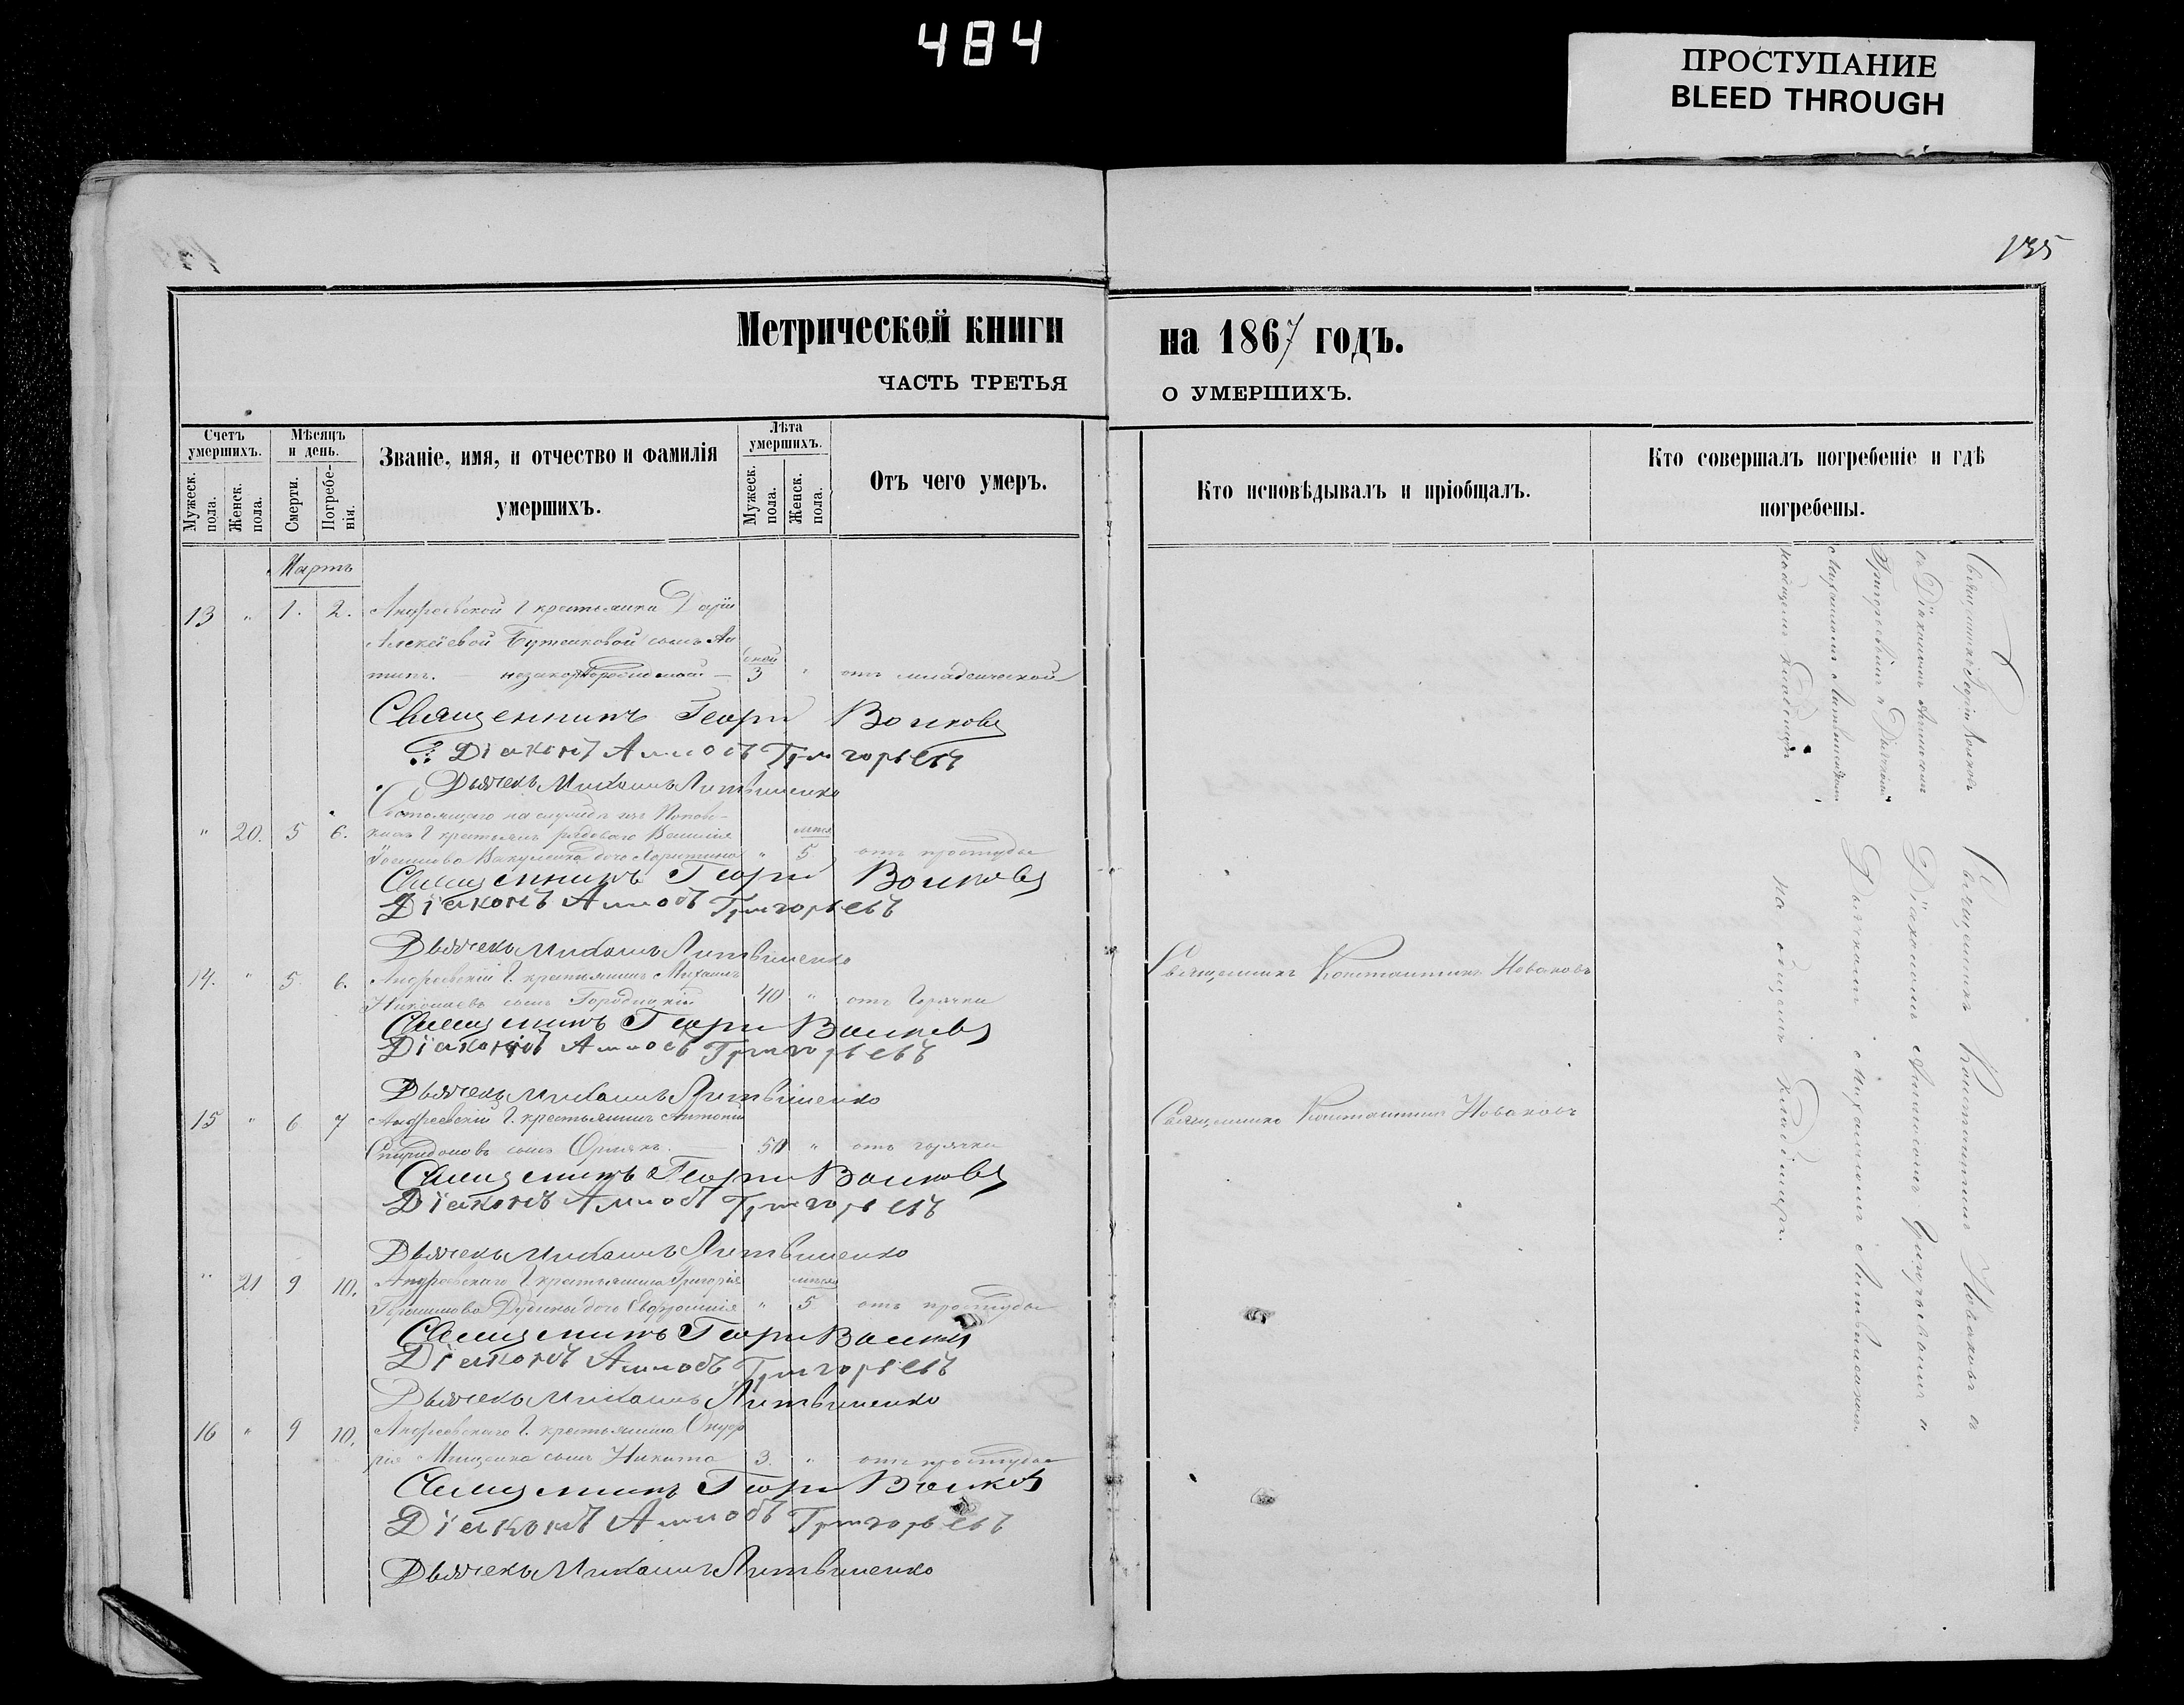 484
ПРОСТУПАНИЕ
BLEED THROUGH
135
Метрической книги на 1867 годъ.
ЧАСТЬ ТРЕТЬЯ О УМЕРШИХЪ.
Счетъ умершихъ.
Мужеск. пола.
Женск. пола.
Мѣсяцъ и день.
Смерти.
Погребе-
нія.
Званіе, имя, и отчество и фамилія
умершихъ.
Лѣта умершихъ.
Мужеск. пола.
Женск. пола.
Отъ чего умеръ.
Кто исповѣдывалъ и пріобщалъ.
Кто совершалъ погребеніе и гдѣ
погребены.
Мартъ
13 " 1. 2. Андреевской крестьянки Даріи
Алексѣевой сынъ Ан
типъ. — — 3 " отъ младенческой
Священникъ Георгій Волковъ
Діаконъ Аммосъ Григорьевъ
Дьячекъ Михаилъ Литвиненко
Состоящаго на службѣ изъ
" 20. 5 6. крестьянъ рядоваго Василія
Вакуленка дочь Харитина " 5 отъ простуды
Священникъ Георгій Волковъ
Діаконъ Аммосъ Григорьевъ
Дьячекъ Михаилъ Литвиненко
14. " 5. 6. Андреевскій крестьянинъ Михаилъ
Николаевъ сынъ Городицкій 40 " отъ горячки
Священникъ Константинъ Новаковъ
Священникъ Георгій Волковъ
Діаконъ Аммосъ Григорьевъ
Дьячекъ Михаилъ Литвиненко
15 " 6 7 Андреевскій крестьянинъ Антоній
Спиридоновъ сынъ — 50 " отъ горячки
Священникъ Константинъ Новаковъ
Священникъ Георгій Волковъ
Діаконъ Аммосъ Григорьевъ
Дьячекъ Михаилъ Литвиненко
" 21 9 10. Андреевскаго крестьянина Григорія
Герасимова дочь Евфросинія " 5 отъ простуды
Священникъ Георгій Волковъ
Діаконъ Аммосъ Григорьевъ
Дьячекъ Михаилъ Литвиненко
16 " 9 10. Андреевскаго крестьянина Онуф
рія Мищенка сынъ Никита 3. " отъ простуды
Священникъ Георгій Волковъ
Діаконъ Аммосъ Григорьевъ
Дьячекъ Михаилъ Литвиненко
Священникъ Георгій Волковъ
съ Діакономъ Аммосомъ
Григорьевымъ и Дьячкомъ
Михаиломъ Литвиненкомъ
на общемъ кладбищѣ
Священникъ Константинъ Новаковъ съ
Діакономъ Аммосомъ Григорьевымъ и
Дьячкомъ Михаиломъ Литвиненкомъ
на общемъ кладбищѣ.